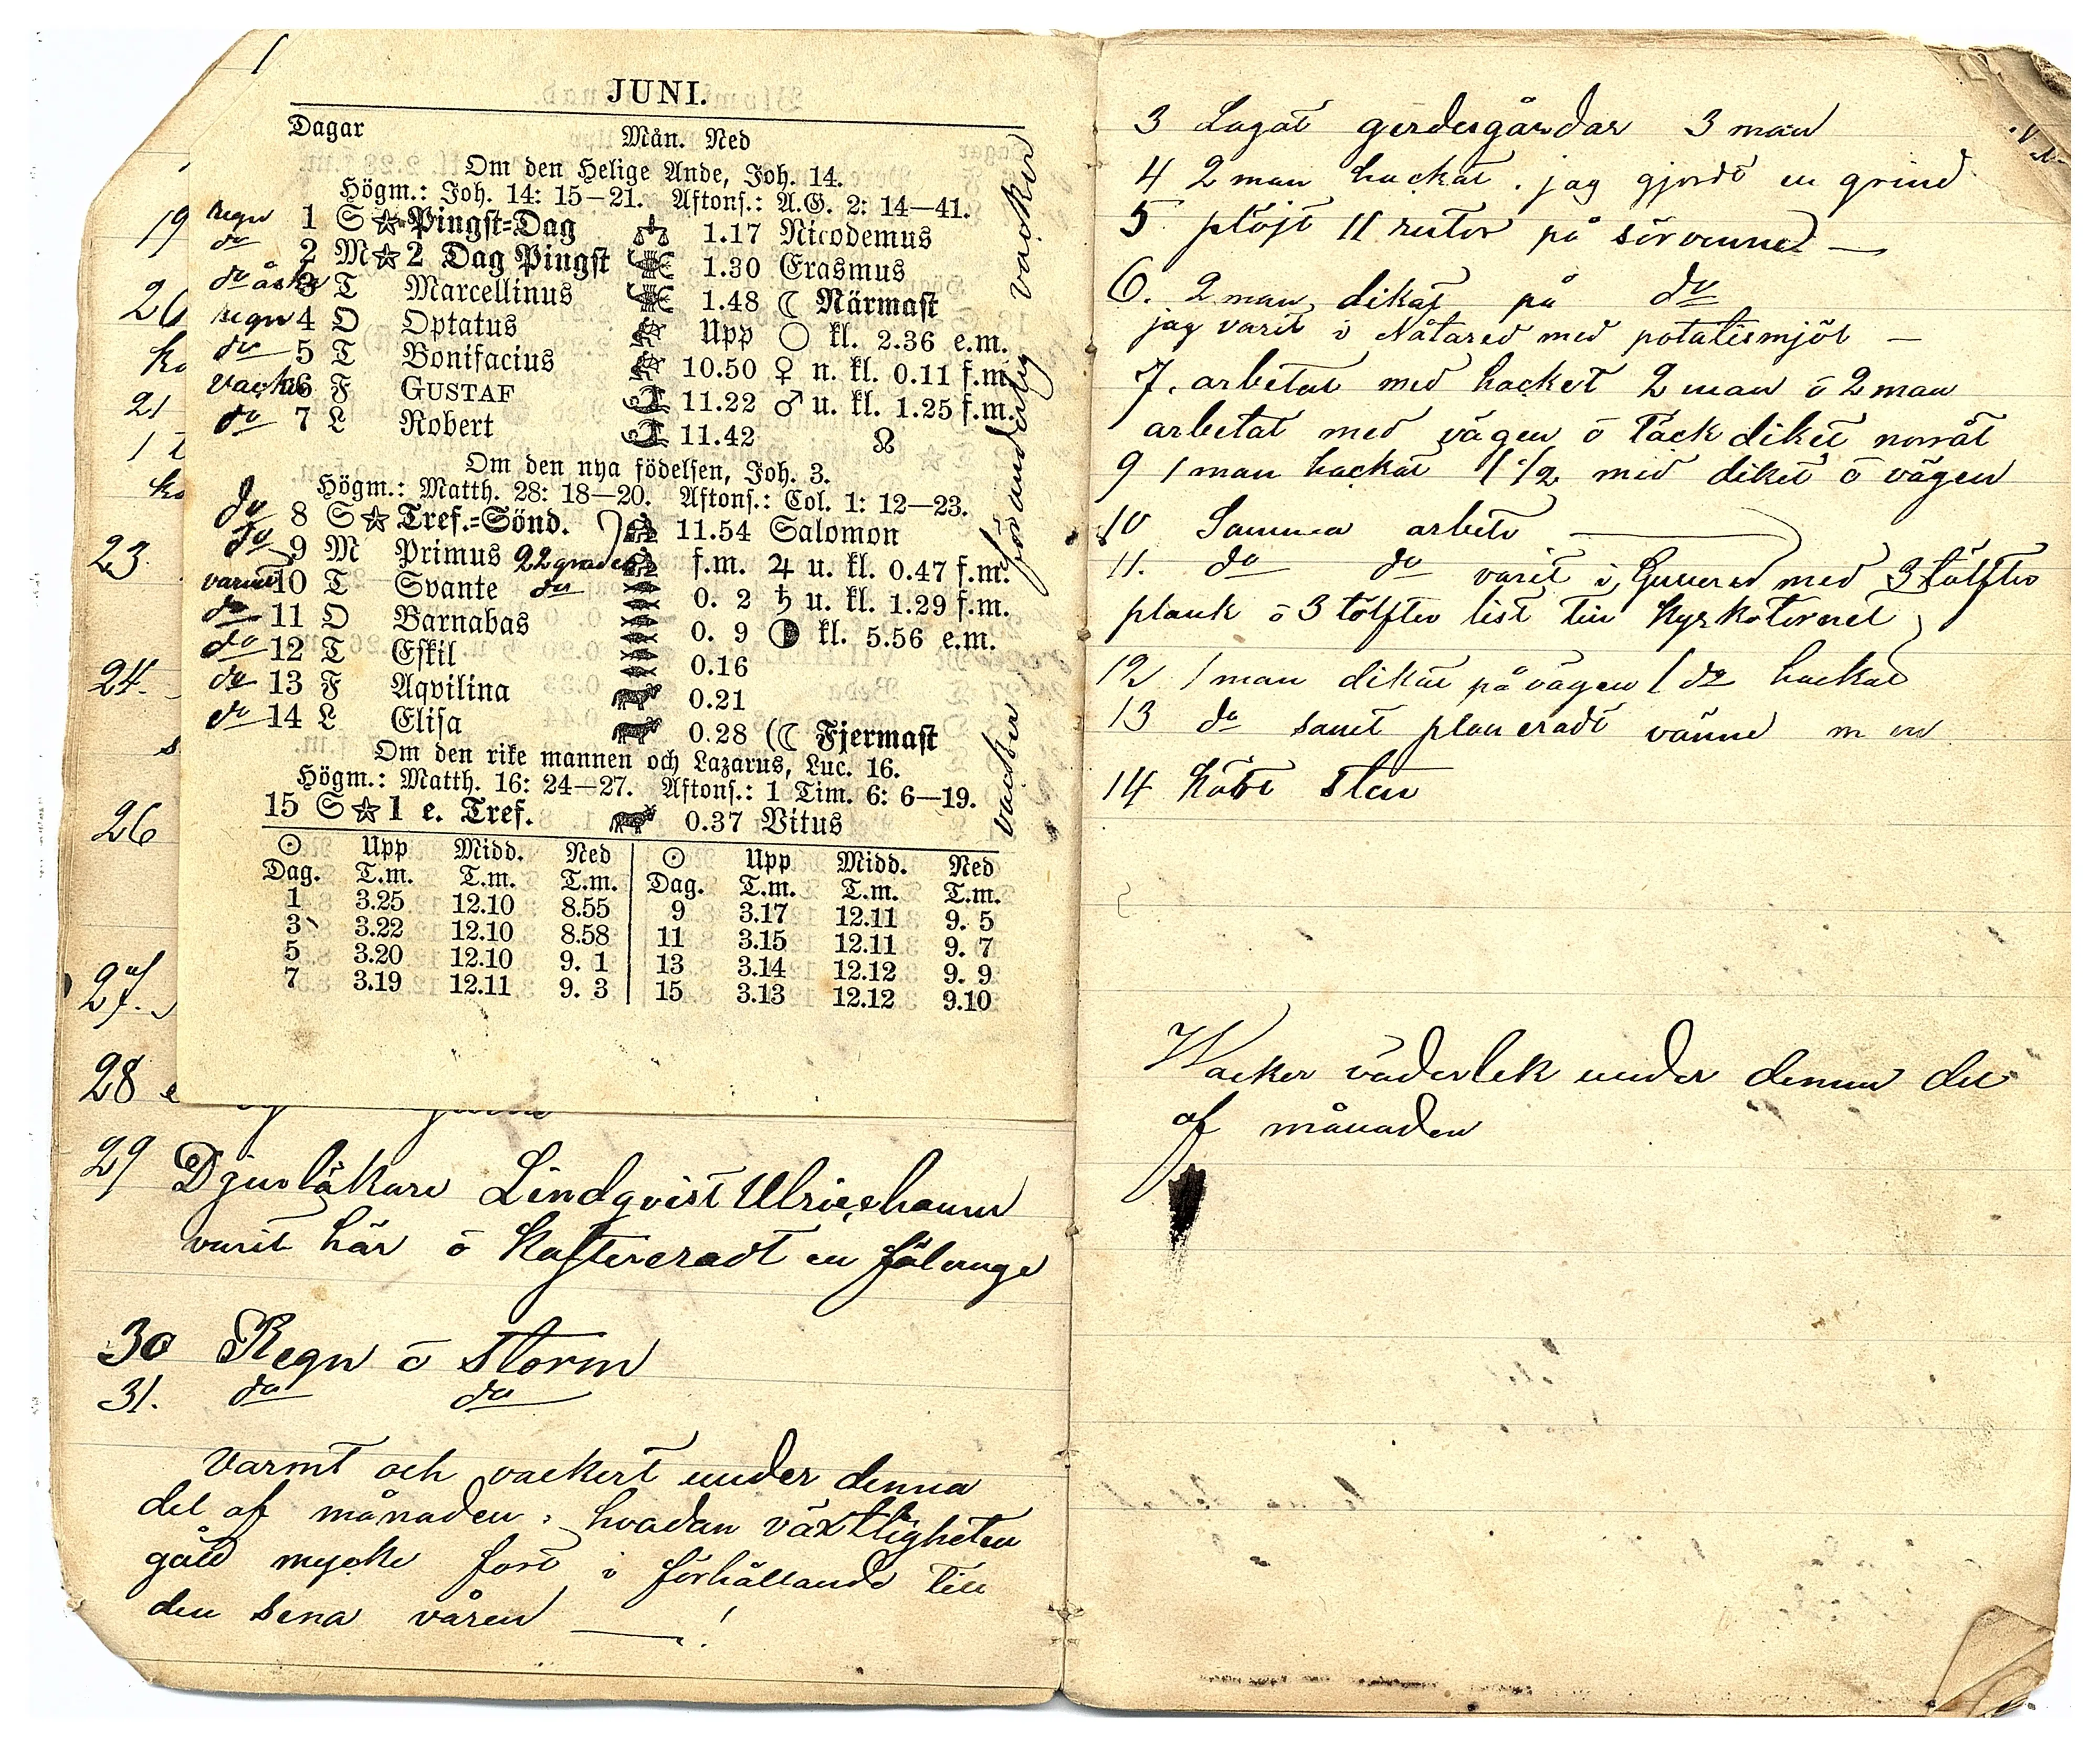 JUNI.
Dagar Mån. Ned
Om den Helige Ande, Joh. 14.
Högm.: Joh. 14: 15—21. Aftonf.: A.G. 2: 14—41.
regn 1 S ☆ Pingst-Dag 1.17 Nicodemus
do 2 M ☆ 2 Dag Pingst 1.30 Erasmus
do åska 3 T Marcellinus 1.48 ☾ Närmast
regn 4 O Optatus Upp ○ kl. 2.36 e.m.
do 5 T Bonifacius 10.50 ♀ n. kl. 0.11 f.m.
vacker 6 F GUSTAF 11.22 ♂ u. kl. 1.25 f.m.
do 7 L Robert 11.42 ☊
Om den nya födelsen, Joh. 3.
Högm.: Matth. 28: 18—20. Aftonf.: Col. 1: 12—23.
do 8 S ☆ Tref.-Sönd. 11.54 Salomon
do 9 M Primus 22 grader f.m. ♃ u. kl. 0.47 f.m.
varmt 10 T Svante do 0. 2 ♄ u. kl. 1.29 f.m.
do 11 O Barnabas 0. 9 ◑ kl. 5.56 e.m.
do 12 T Eskil 0.16
do 13 F Aqvilina 0.21
do 14 L Elisa 0.28 (☾ Fjermast
Om den rike mannen och Lazarus, Luc. 16.
Högm.: Matth. 16: 24—27. Aftonf.: 1 Tim. 6: 6—19.
15 S ☆ 1 e. Tref. 0.37 Vitus
☉ Upp Midd. Ned ☉ Upp Midd. Ned
Dag. T.m. T.m. T.m. Dag. T.m. T.m. T.m.
1 3.25 12.10 8.55 9 3.17 12.11 9. 5
3 3.22 12.10 8.58 11 3.15 12.11 9. 7
5 3.20 12.10 9. 1 13 3.14 12.12 9. 9
7 3.19 12.11 9. 3 15 3.13 12.12 9.10
vacker föränderlig vacker
19
20
21
23
24.
26
27.
28
29 Djurläkare Lindqvist Ulricehamn
varit här ö kastreradt en fölunge
30 Regn ö storm
31. do do
Varmt och vackert under denna
del af månaden, hvadan växtligheten
gått mycke fort i förhållande till
den sena våren —!
3 Lagat gerdesgårdar 3 man
4 2 man hackat. jag gjordt en grind
5 plöjt 11 rutor på sörvennet —
6. 2 man dikat på do
jag varit i Nåtared med potatismjöl —
7. arbetat med hacket 2 man ö 2 man
arbetat med vägen ö täckdiket norråt
9 1 man hackat 1 1/2 med diket ö vägen
10 Samma arbete
11. do do varit i med 3 tölfter
plank ö 3 tölfter list till kyrkotornet
12 1 man dikat på vägen 1 do hackat
13 do samt planeradt vänne m m
14 kört sten
Wacker väderlek under denna del
af månaden